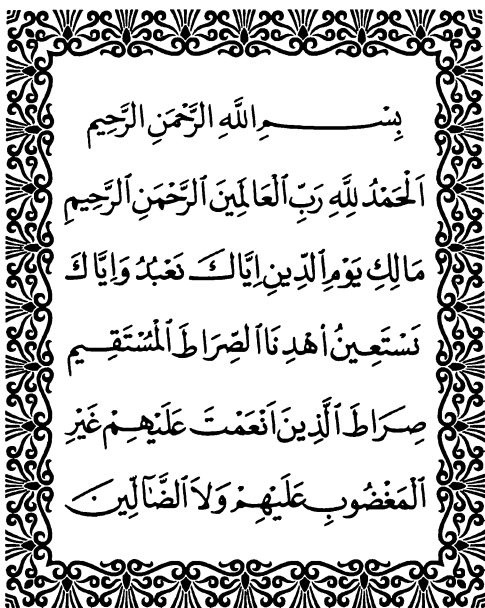 بِسْـــــمِ اللَّهِ الرَّحْمَنِ الرَّحِيمِ
اَلْحَمْدُ لِلَّهِ رَبِّ ٱلْعَالَمِينَ ٱلرَّحْمَنِ ٱلرَّحِيمِ
مَالِكِ يَوْمِ ٱلدِّينِ اِيَّاكَ نَعْبُدُ وَاِيَّاكَ
نَسْتَعِينُ اُهْدِنَا ٱلصِّرَاطَ ٱلْمُسْتَقِـيم
صِرَاطَ ٱلَّذِينَ اَنْعَمْتَ عَلَيْهِـمْ غَيْرِ
ٱلْمَغْضُوبِ عَلَيْهِـمْ وَلاَ ٱلضَّآلِّينَ